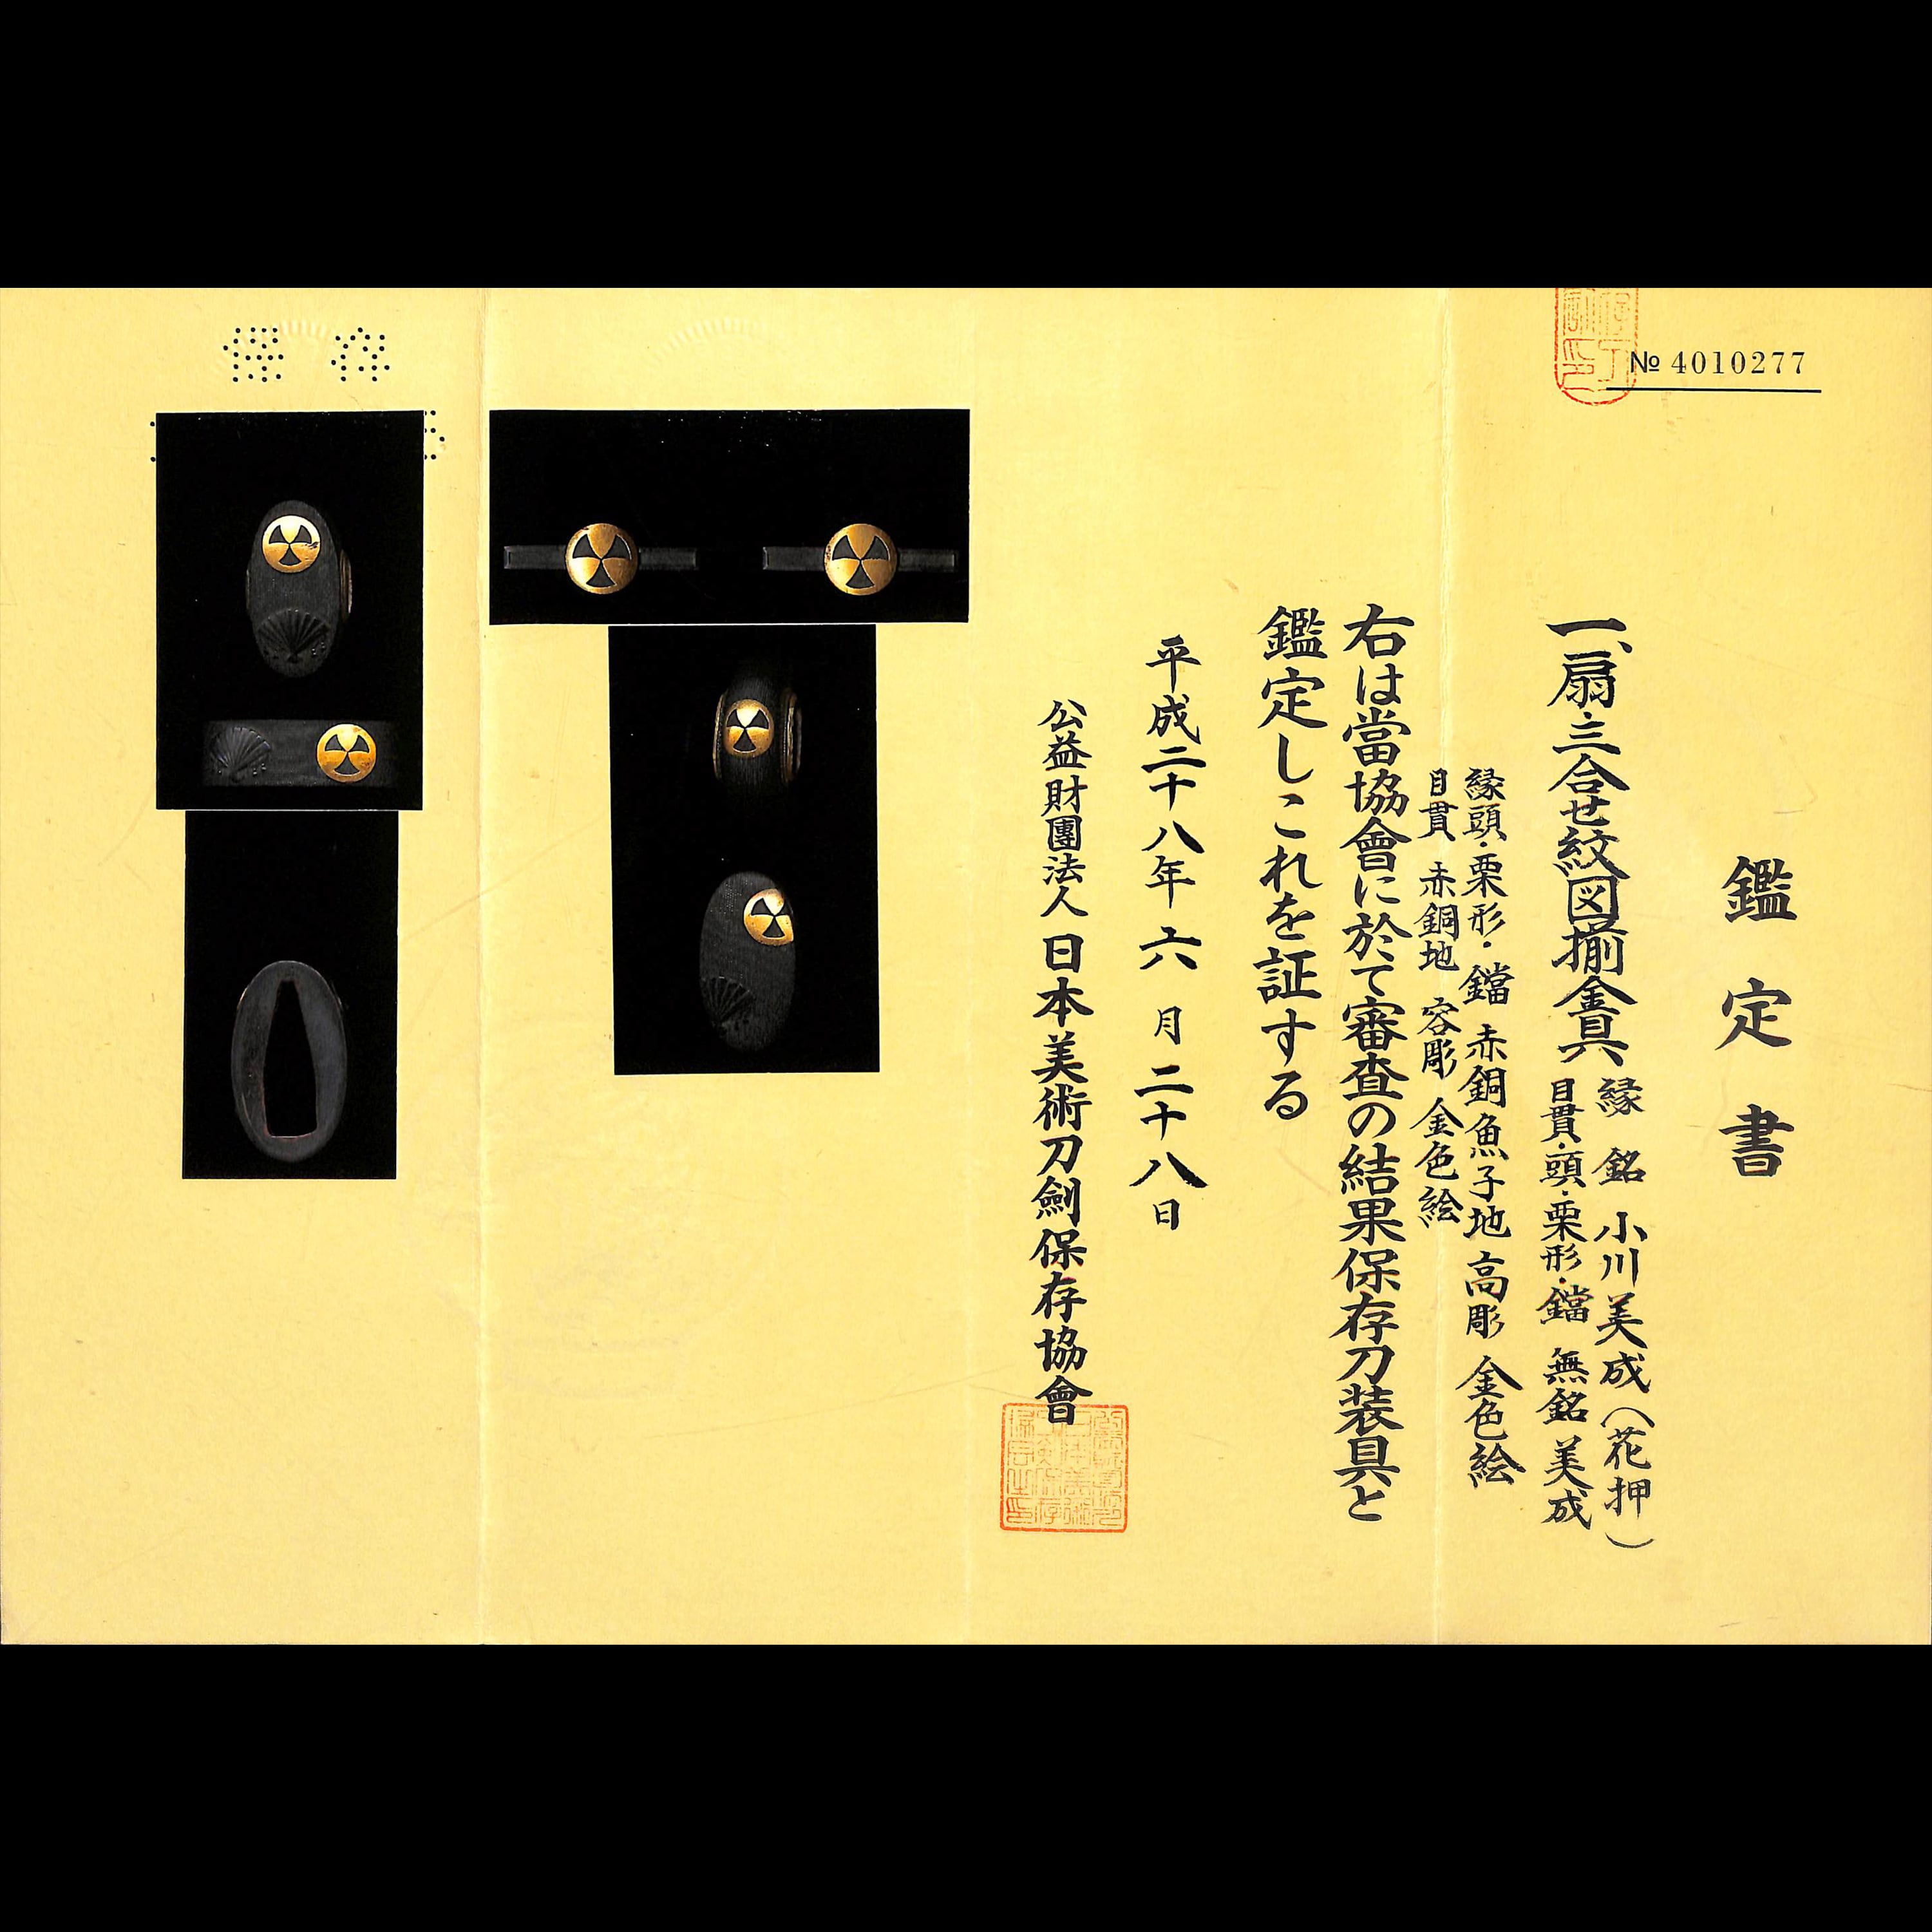 № 4010277
鑑定書
一、扇・三合せ紋図揃金具
縁 銘 小川美成(花押)
目貫・頭・栗形・鐺 無銘 美成
縁頭・栗形・鐺 赤銅魚子地 高彫 金色絵
目貫 赤銅地 容彫 金色絵
右は當協會に於て審査の結果保存刀装具と
鑑定しこれを証する
平成二十八年六月二十八日
公益財團法人 日本美術刀劍保存協會
保存